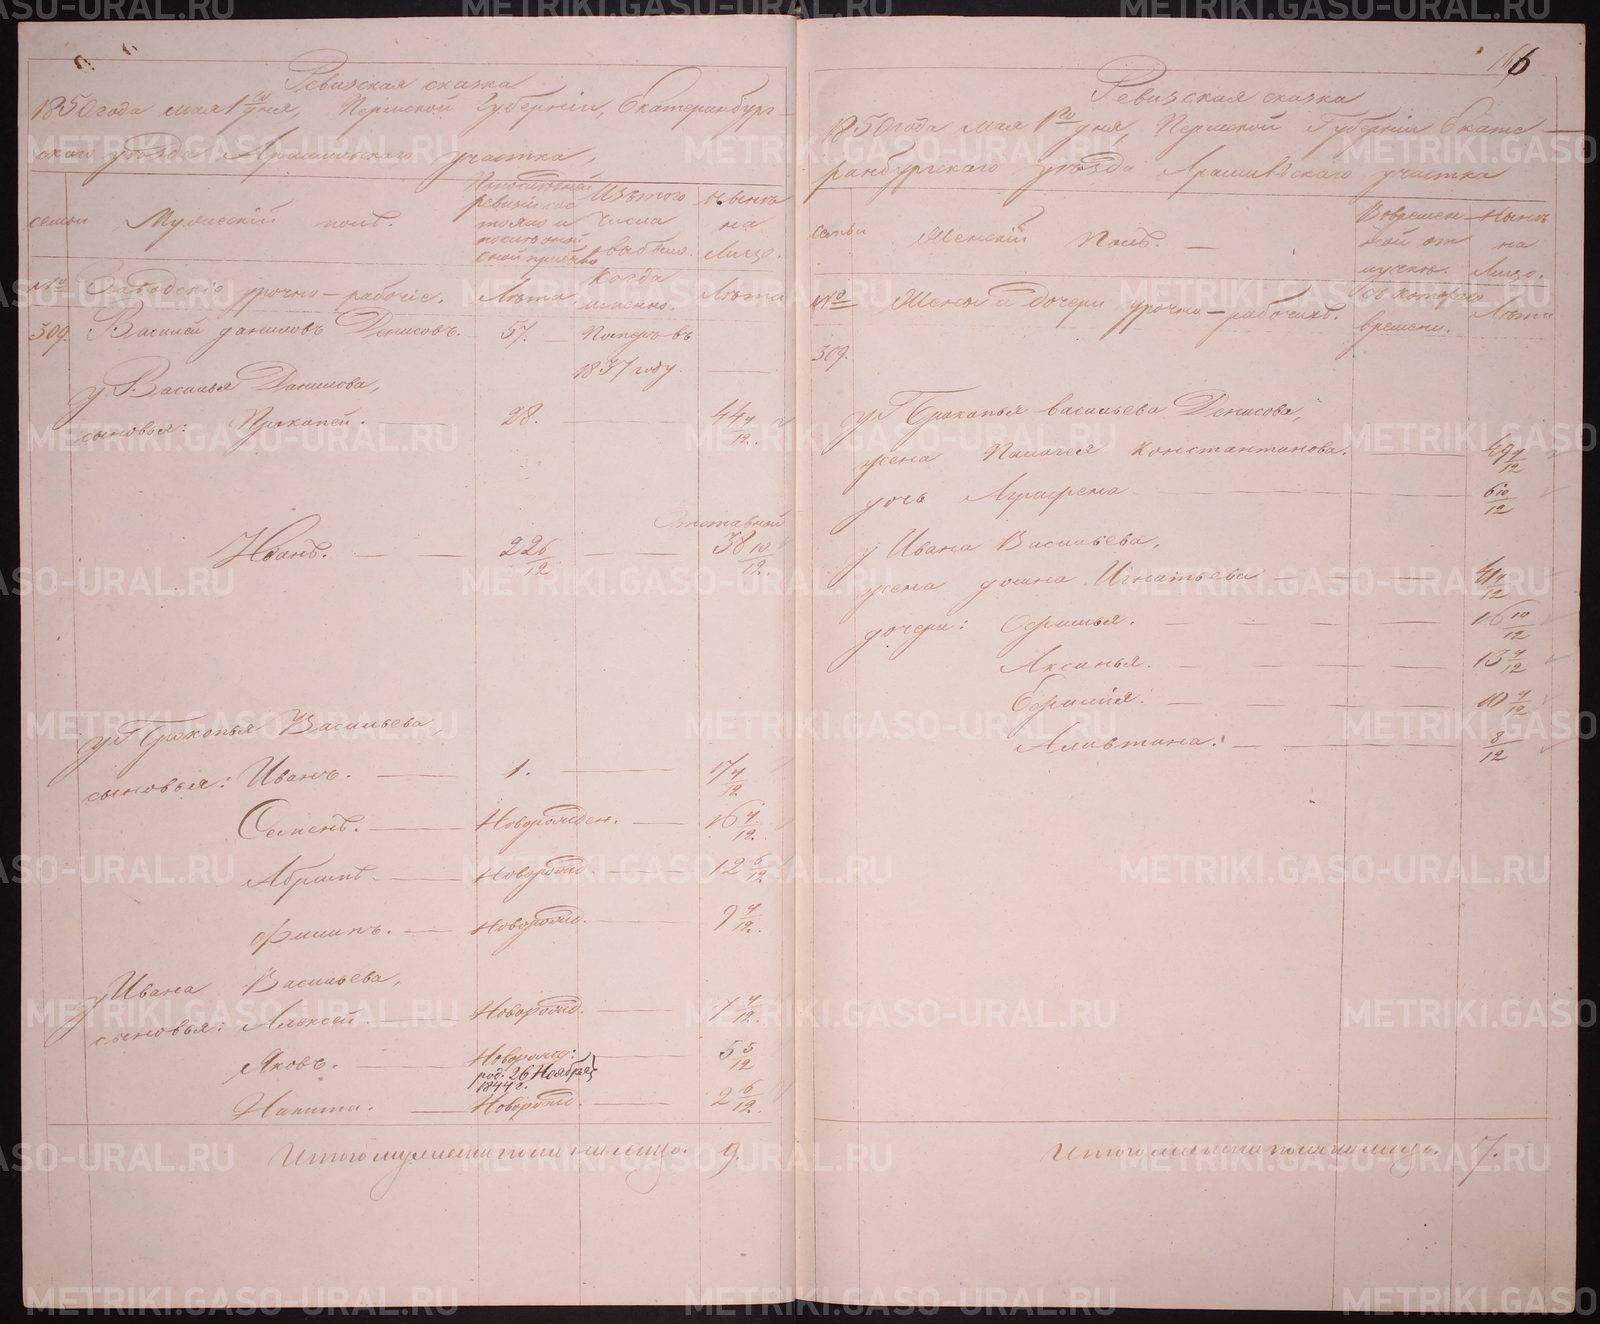 166
Ревизская сказка
1850 года мая 1го дня, Пермской Губернии, Екатеринбург-
скаго уѣзда Арамильскаго участка,
семьи
Мужескій полъ.
По последней ревизіи состояло и
Изъ того числа выбыло.
Нынѣ на лицо.
№
Заводскіе урочно-рабочіе.
Лѣта
Когда именно.
Лѣта
309. Василей даниловъ Денисовъ. 57. Померъ въ
1837 году.
у Василья Данилова,
сыновья: Прокопей. 28. 44 4/12.
Отставной
Иванъ. 22 6/12 38 10/12.
у Прокопья Васильева
сыновья: Иванъ. 1. 17 4/12
Семенъ. Новорожден. 16 4/12.
Абрамъ. Новорожд. 12 6/12.
Филипъ. Новорожд. 9 4/12.
у Ивана Васильева,
сыновья: Алексей. Новорожд. 7 4/12.
Яковъ. Новорожд: 5 5/12
род. 26 Ноября
1844 г.
Никита. Новорожд. 2 6/12.
Итого мужеска пола на лицо. 9.
Ревизская сказка
1850 года мая 1го дня, Пермской Губерніи Екате-
ринбургскаго уѣзда Арамильскаго участка
Семьи
Женскій Полъ.
Во времен-
ной от
лучке.
Нынѣ
на
Лицо.
№
Жены и дочери урочно-рабочихъ.
Съ котораго
времени.
Лѣта
309.
у Прокопья васильева Денисова,
жена Палагея Константинова. 49 4/12
дочь Аграфена 6 10/12
у Ивана Васильева,
жена Игнатьева 41 4/12
дочери: Офимья. 16 10/12
Аксинья. 13 4/12
10 4/12
Алавтина. 8/12
Итого женска пола на лицо. 7.
METRIKI.GASO-URAL.RU